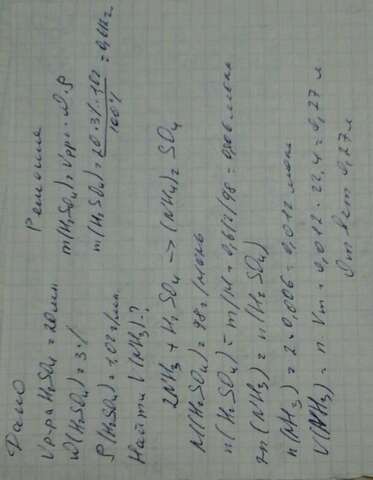 Дано
Vр-ра H₂SO₄ = 20 мл
ω(H₂SO₄) = 3%
ρ(H₂SO₄) = 1,02 г/мл
Найти V(NH₃)-?
Решение
m(H₂SO₄) = Vрр · ω · ρ
m(H₂SO₄) = 20 · 3% · 1,02 / 100% = 0,612 г
2NH₃ + H₂SO₄ → (NH₄)₂SO₄
M(H₂SO₄) = 98 г/моль
n(H₂SO₄) = m/M = 0,612/98 = 0,006 моль
n(NH₃) = n(H₂SO₄)
n(NH₃) = 2 · 0,006 = 0,012 моль
V(NH₃) = n · Vm = 0,012 · 22,4 = 0,27 л
Ответ 0,27 л